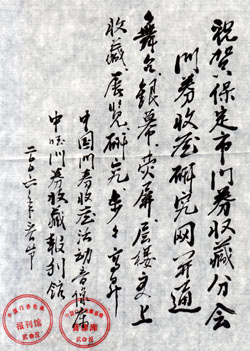 祝贺保定市门券收藏分会
门券收藏研究网开通
舞台银幕荧屏层楼更上
收藏展览研究步步高升
中国门券收藏活动音像库
中国门券收藏报刊馆
二〇〇六年
报刊馆
音像库